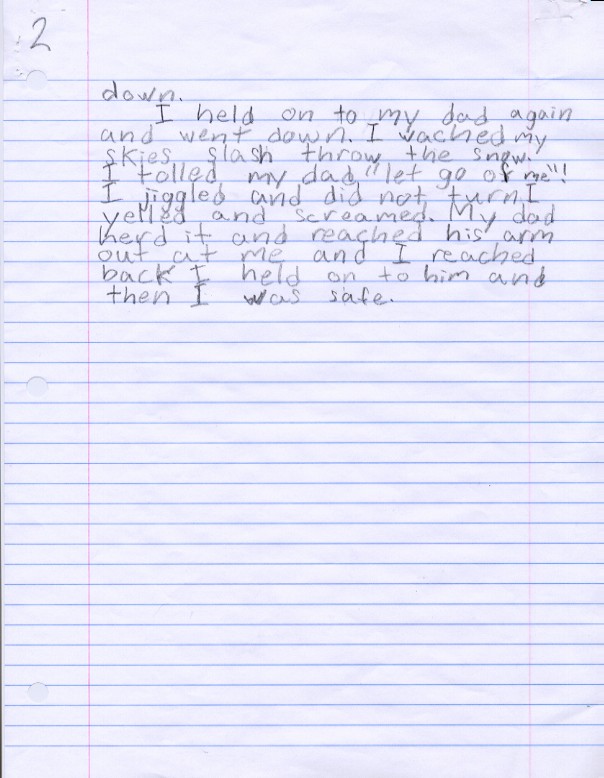 2
down.
I held on to my dad again
and went down. I wached my
skies slash throw the snow.
I tolled my dad "let go of me"!
I jiggled and did not turn. I
yelled and screamed. My dad
herd it and reached his arm
out at me and I reached
back I held on to him and
then I was safe.